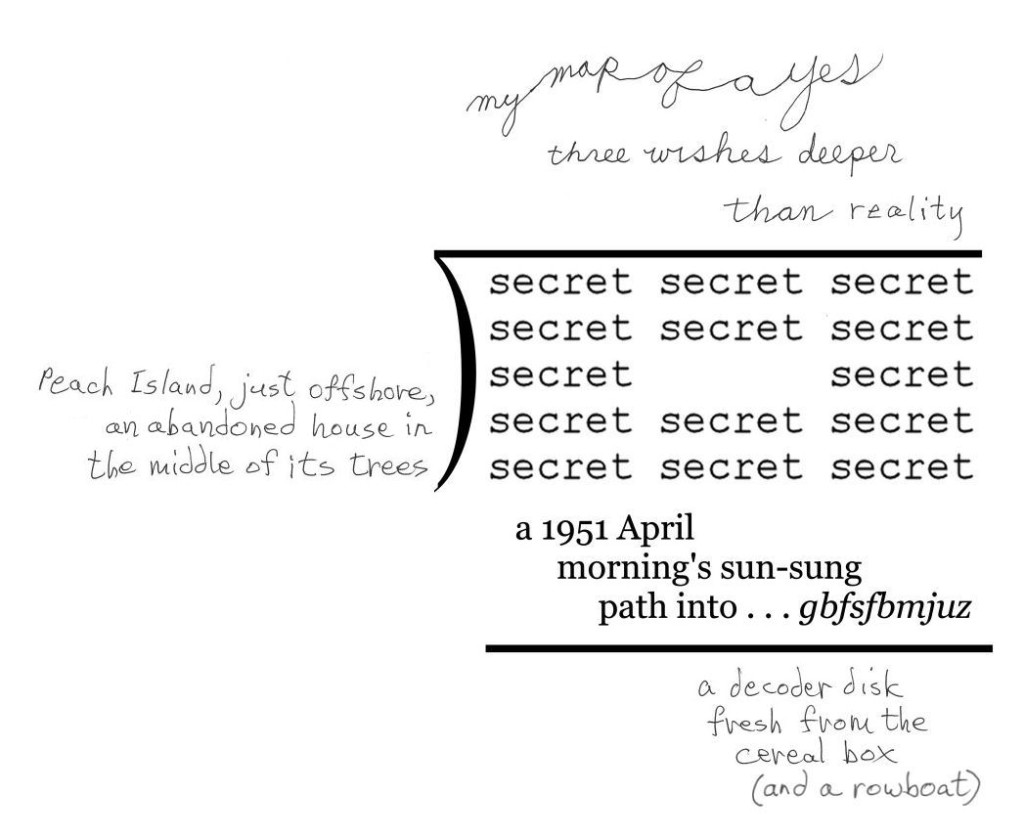 my map of a yes
three wishes deeper
than reality
secret secret secret
secret secret secret
secret secret
secret secret secret
secret secret secret
Peach Island, just offshore,
an abandoned house in
the middle of its trees
a 1951 April
morning's sun-sung
path into . . . gbfsfbmjuz
a decoder disk
fresh from the
cereal box
(and a rowboat)